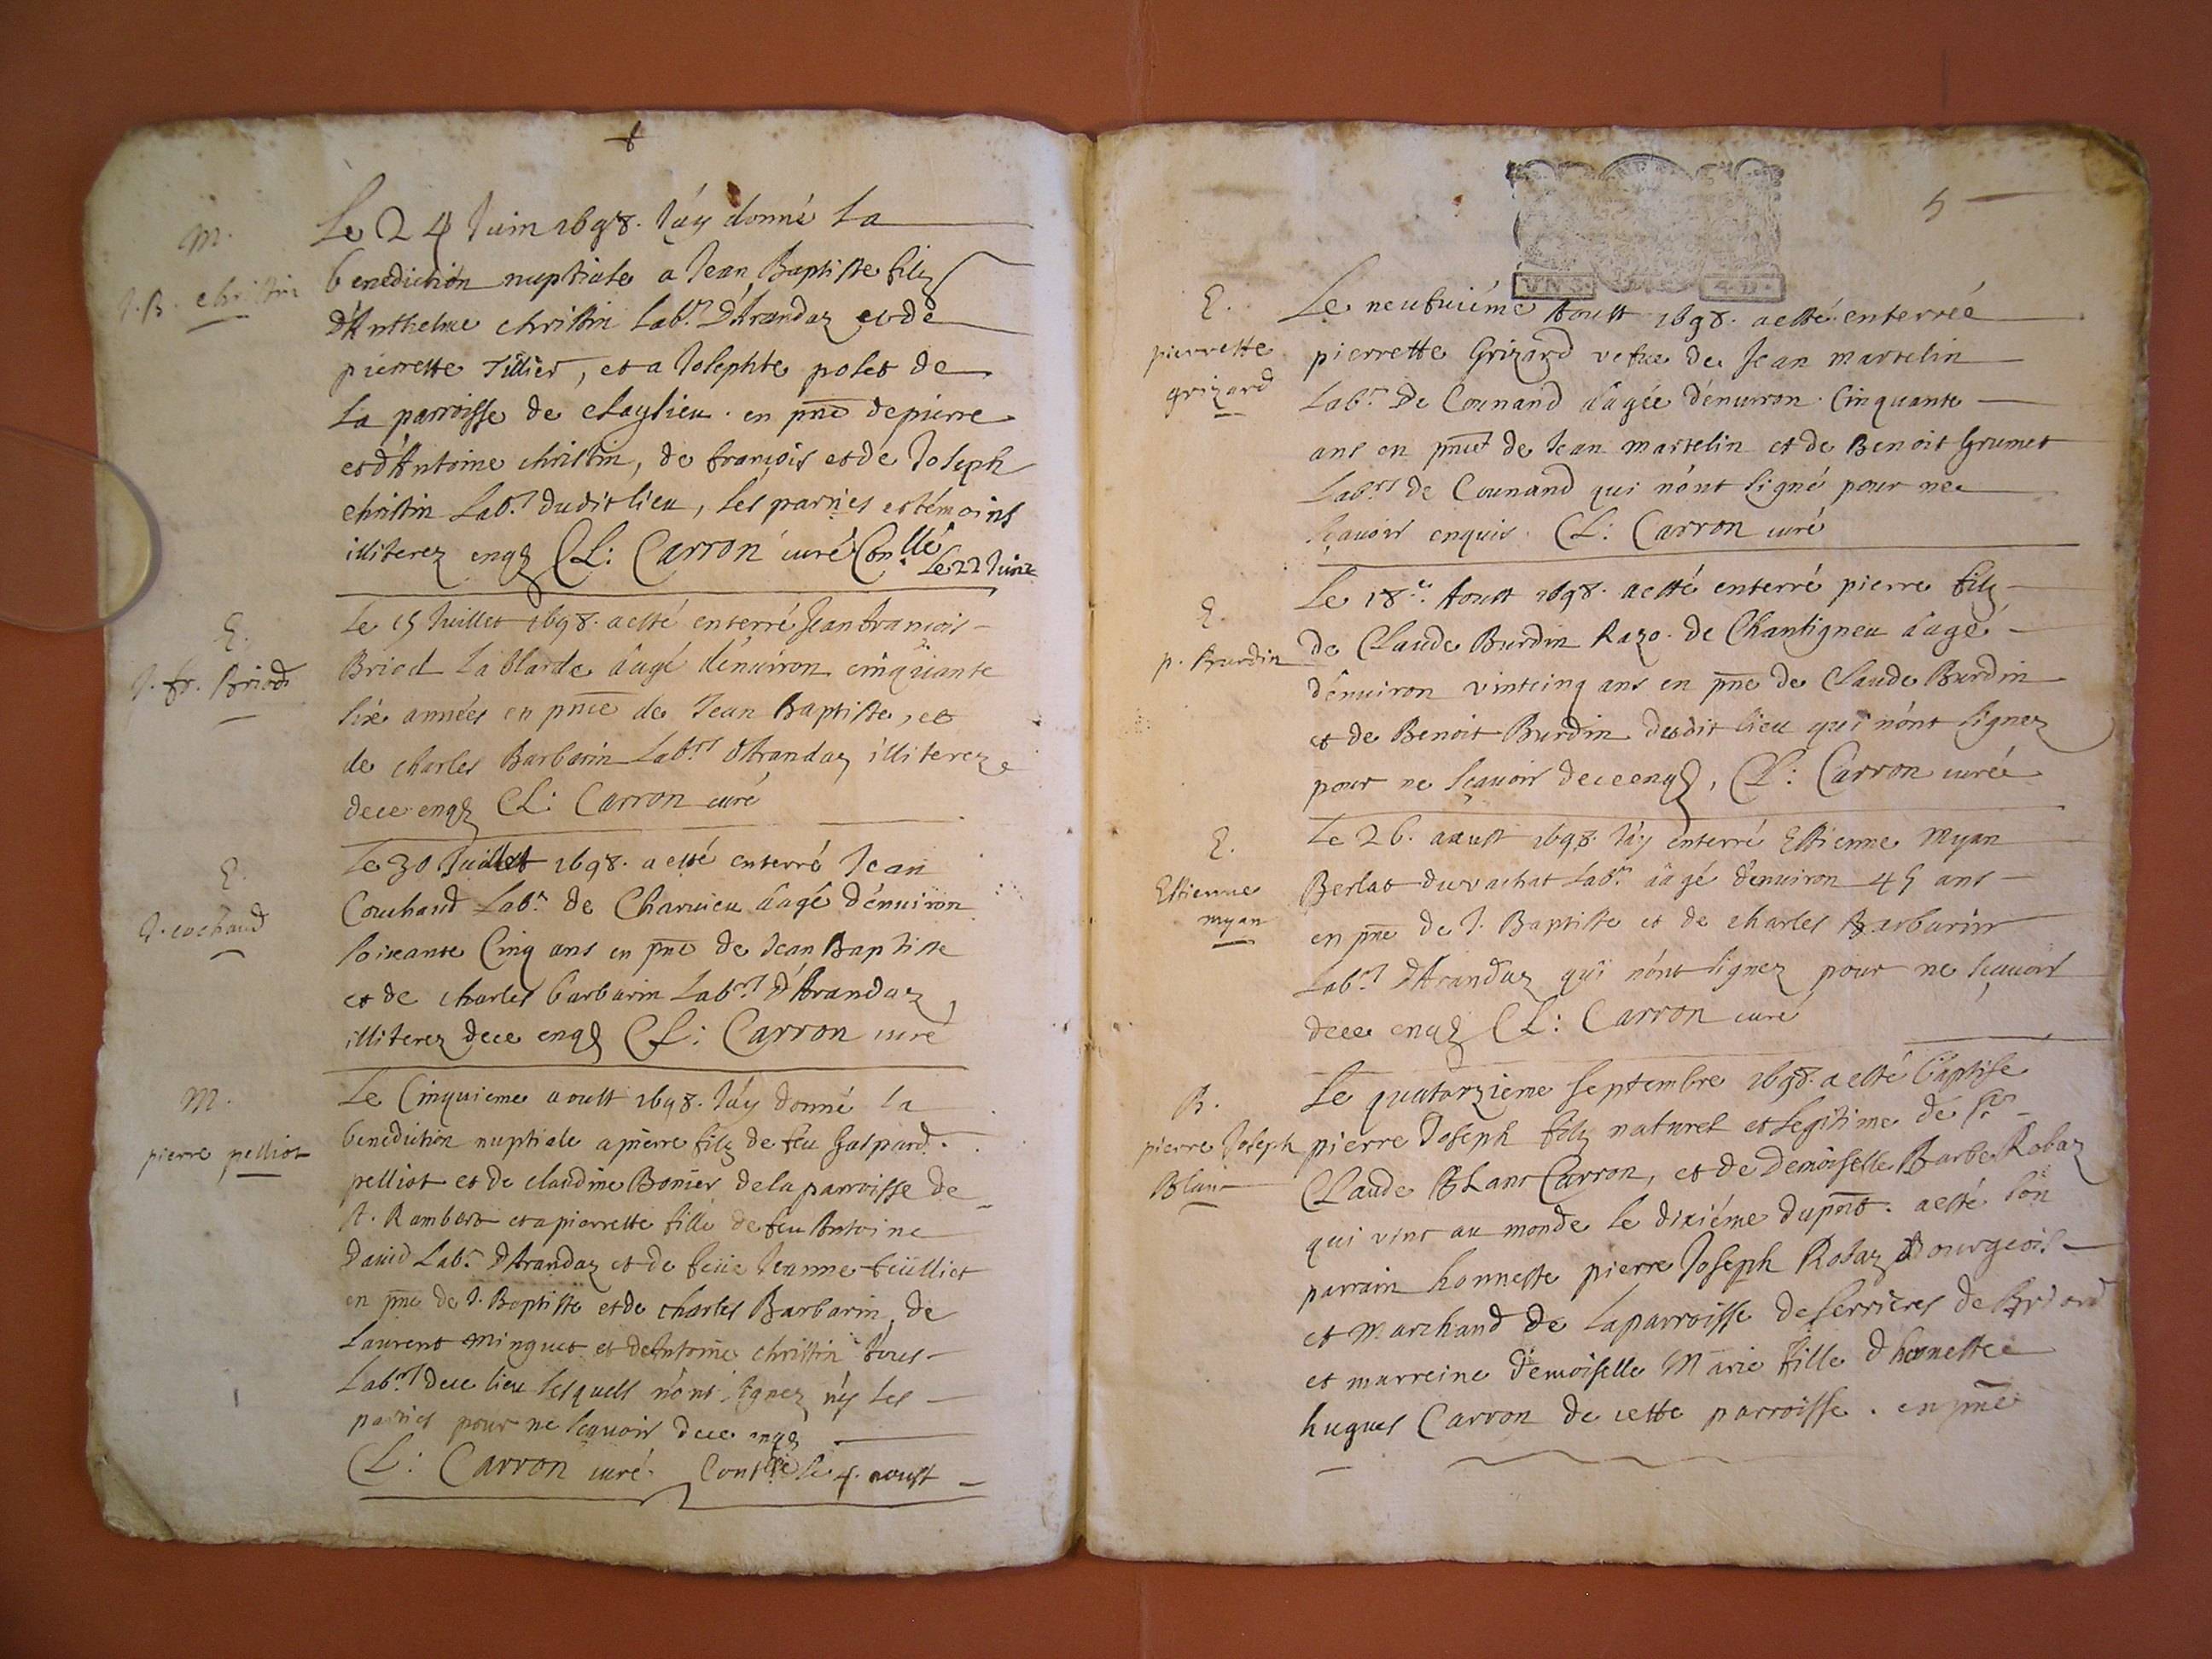 M.
J.B. christin
Le 24 Juin 1698. J'áy donné la
benediction nuptiale a Jean Baptiste filz
d'Anthelme christin Lab.r D'Arandaz et de
pierrette Tillier, et a Josephte polet de
la parroisse de Clayslieu. en pnce de pierre
et d'Antoine christin, de francois et de Joseph
christin Lab.rs dudit lieu, les parties et témoins
illiterez enqs CL: Carron curé Con.llé
Le 22 Juin
E.
J. fr. Briod
Le 15 Juillet 1698. a esté enterré Jean francois
Briod Lablarde aagé d'énuiron cinquante
six années en pnce de Jean Baptiste, et
de charles Barbarin Lab.rs d'Arandaz illiterez
de ce enqs CL: Carron curé
E.
J. cochand
Le 30 Juillet 1698. a esté enterré Jean
Couchand Lab.r de Charuieu aagé d'énuiron
soixante Cinq ans en pnce de Jean Baptiste
et de charles barbarin Lab.rs d'Arandaz,
illiterez de ce enqs CL: Carron curé
M.
pierre pelliot
Le Cinquieme aoust 1698. J'áy donné la
benediction nuptiale a pierre filz de feu Gaspard
pelliot et de claudine Bonier de la parroisse de
St. Rambert et a pierrette fille de feu Antoine
Dauid Lab.r d'Arandaz et de feüe Jeanne feüilliet
en pnce de J. Baptiste et de charles Barbarin, de
Laurent Minguet et de Antoine christin tous
Lab.rs de ce lieu lesquels n'ónt signez n'y les
parties pour ne sçauoir de ce enqs
CL: Carron curé. Contllé le 4. aoust
5
VN S. 4. D.
E.
pierrette
grizard
Le neufuiéme Aoust 1698. a esté enterrée
pierrette Grizard vefue de Jean martelin
Lab.r De Counand aagée d'énuiron Cinquante
ans en pnce de Jean martelin et de Benoit Grumet
Lab.rs de Counand qui n'ónt signé pour ne
sçauoir enquis. CL: Carron curé
E.
p. Burdin
Le 18.e Aoust 1698. a esté enterré pierre filz
de Claude Burdin Razo. de Chantigneu aagé
d'énuiron vintcinq ans en pnce de Claude Burdin
et de Benoit Burdin dudit lieu qui n'ónt signez
pour ne sçauoir de ce enqs, CL: Carron curé
E.
Estienne
myan
Le 26. aoust 1698. J'áy enterré Estienne Myan
Berlat du vachat Lab.r aagé d'enuiron 45 ans
en pnce de J. Baptiste et de charles Barbarin
Lab.rs d'Arandaz qui n'ónt signez pour ne sçauoir
de ce enqs CL: Carron curé
B.
pierre Joseph
Blanc
Le quatorzieme septembre 1698. a esté baptise
pierre Joseph filz naturel et legitime de Sr
Claude Blanc Carron, et de Demoiselle Barbe Robaz
qui vint au monde le dixiéme du pnt. a esté son
parrain honneste pierre Joseph Robaz Bourgeois
et marchand de la parroisse de serrieres de Briord
et marreine Demoiselle Marie fille d'honneste
hugues Carron de cette parroisse. en pnce